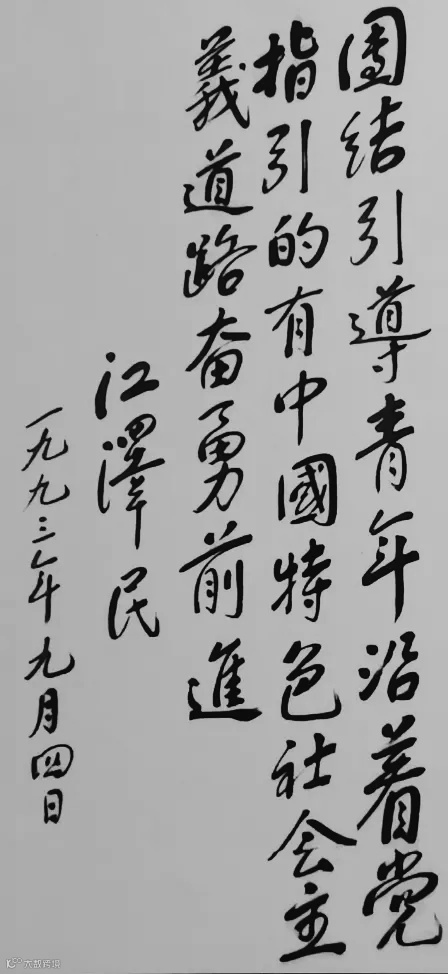 團结引導青年沿着党
指引的有中國特色社会主
義道路奋勇前進
江澤民
一九九三年九月四日
大数跨境